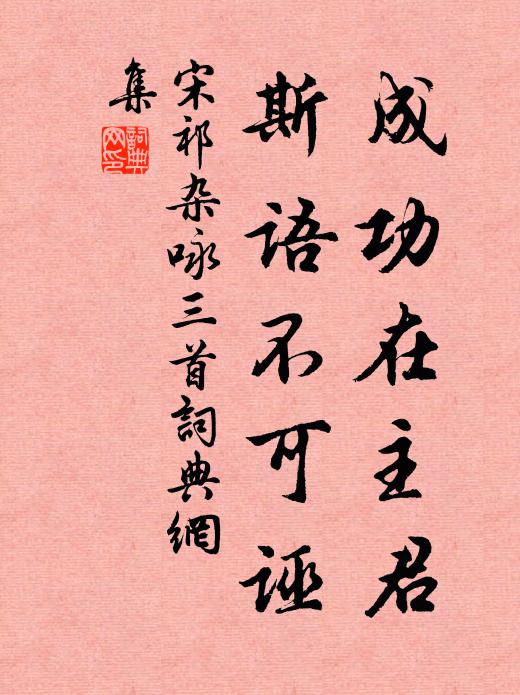 成功在主君
斯语不可诬
宋祁杂咏三首词典網
集
詞典
网印